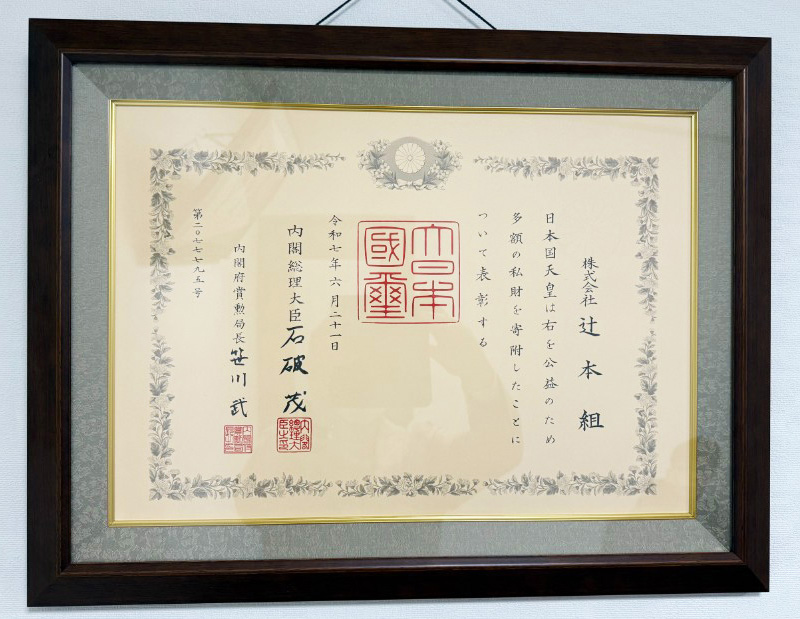 株式会社 辻本組
日本国天皇は右を公益のため
多額の私財を寄附したことに
ついて表彰する
大日本
國璽
令和七年六月二十一日
内閣総理大臣 石破 茂
内閣総理大臣之印
内閣府賞勲局長 笹川 武
第二〇七七九五号